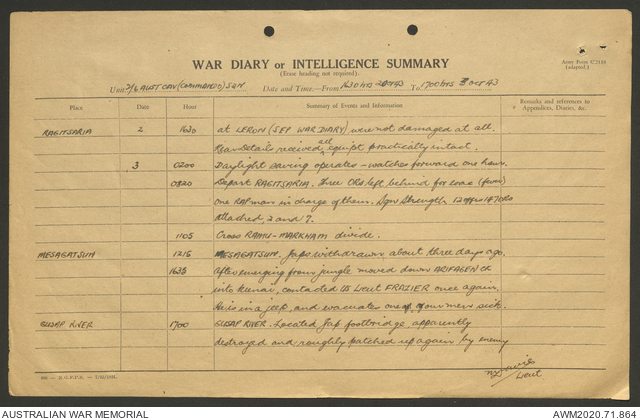 WAR DIARY or INTELLIGENCE SUMMARY
(Erase heading not required).
Army Form C2118
(adapted.)
Unit: 2/6 AUST CAV (COMMANDO) SQN Date and Time.—From 1630 hrs 2 Oct 43 To 1700 hrs 3 Oct 43
Place Date Hour Summary of Events and Information Remarks and references to
Appendix, Diaries, &c.
RAGITSARIA 2 1630 at LERON (SEP WAR DIARY) were not damaged at all.
Rear Details received all equipt practically intact.
3 0200 Daylight saving operates – watches forward one hour.
0820 Depart RAGITSARIA. Three ORs left behind for evac (fever)
one RAP man in charge of them. Sqn Strength 12 offrs 147 ORs
attached, 2 and 7.
1105 Cross RAMU-MARKHAM divide.
MESAGATSUM 1215 MESAGATSUM. Japs withdrawn about three days ago.
1635 After emerging from jungle moved down ARIFAGEN CK
into kunai, contacted US Lieut FRAZIER once again.
He is in a jeep, and evacuates one of our men sick.
GUSAP RIVER 1700 GUSAP RIVER. Located Jap footbridge apparently
destroyed and roughly patched up again by enemy
Lieut
AUSTRALIAN WAR MEMORIAL
AWM2020.71.864